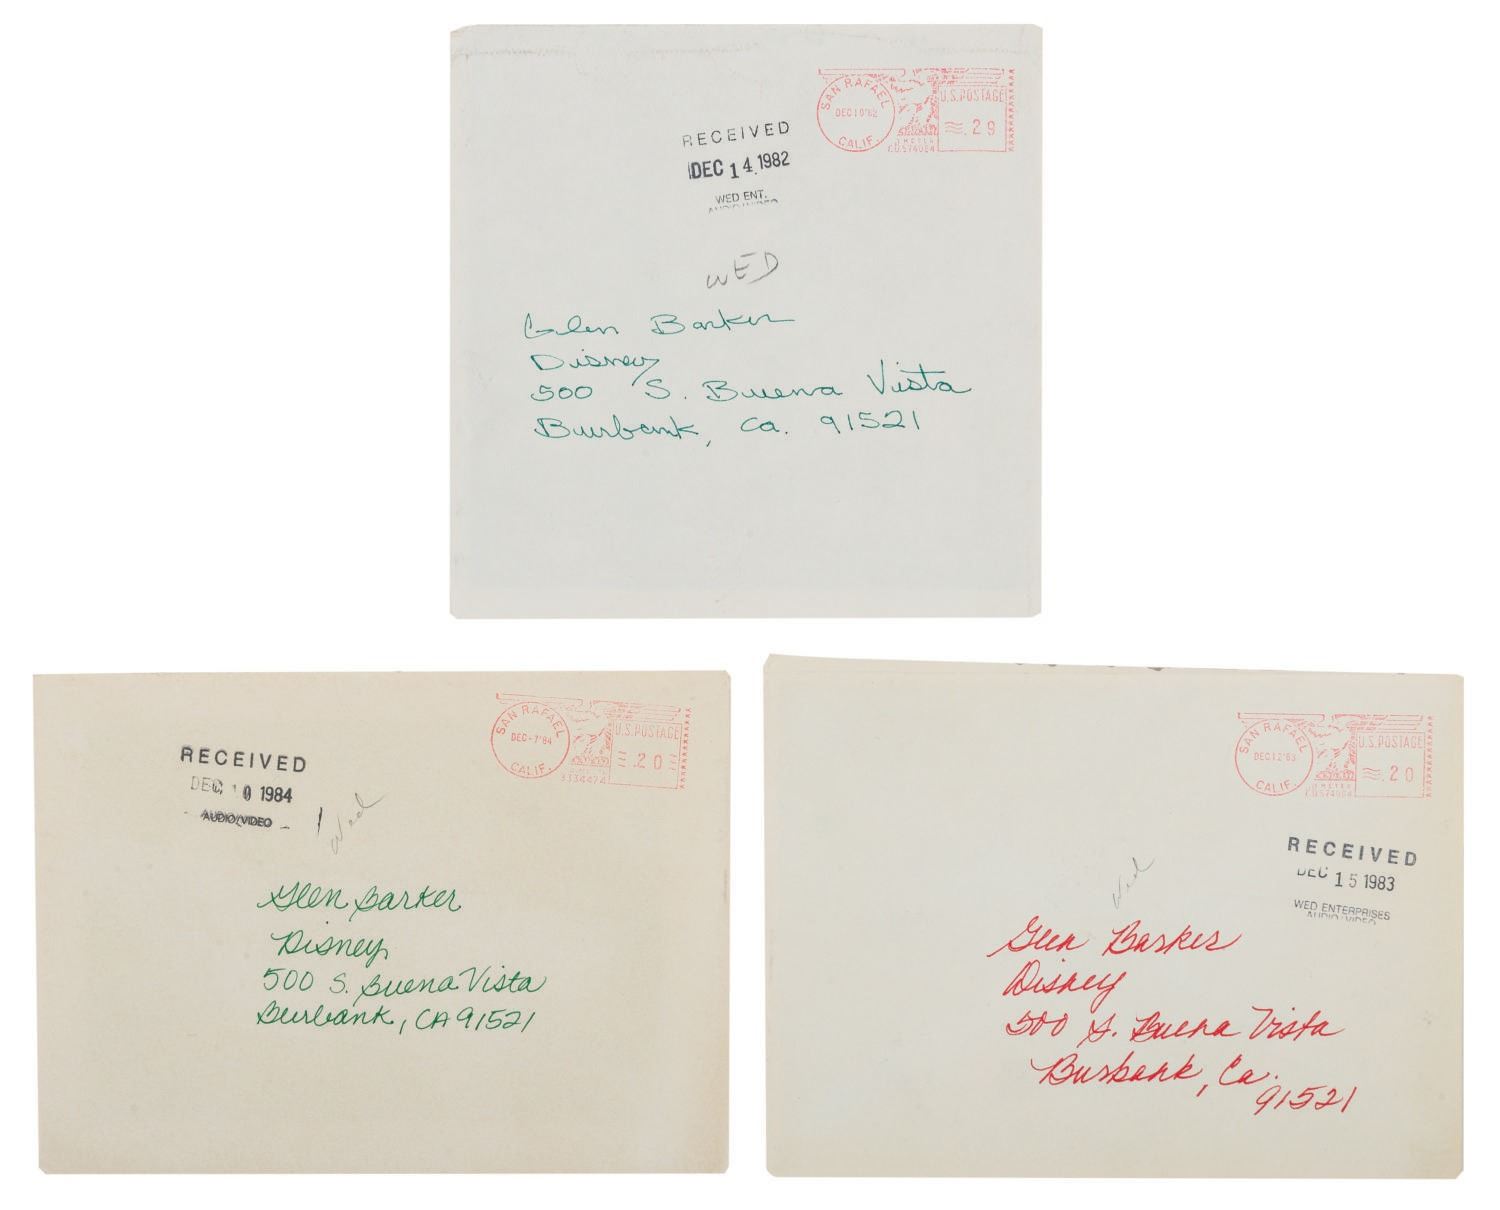 SAN RAFAEL
DEC 10 '82
CALIF.
U.S. POSTAGE
.29
RECEIVED
DEC 14 1982
WED ENT.
AUDIO/VIDEO
WED
Glen Barker
Disney
500 S. Buena Vista
Burbank, Ca. 91521
SAN RAFAEL
DEC -7 '84
CALIF.
U.S. POSTAGE
.20
RECEIVED
DEC 10 1984
AUDIO/VIDEO
Wed
Glen Barker
Disney
500 S. Buena Vista
Burbank, CA 91521
SAN RAFAEL
DEC 12 '83
CALIF.
U.S. POSTAGE
.20
RECEIVED
DEC 15 1983
WED ENTERPRISES
AUDIO/VIDEO
Wed
Glen Barker
Disney
500 S. Buena Vista
Burbank, Ca.
91521